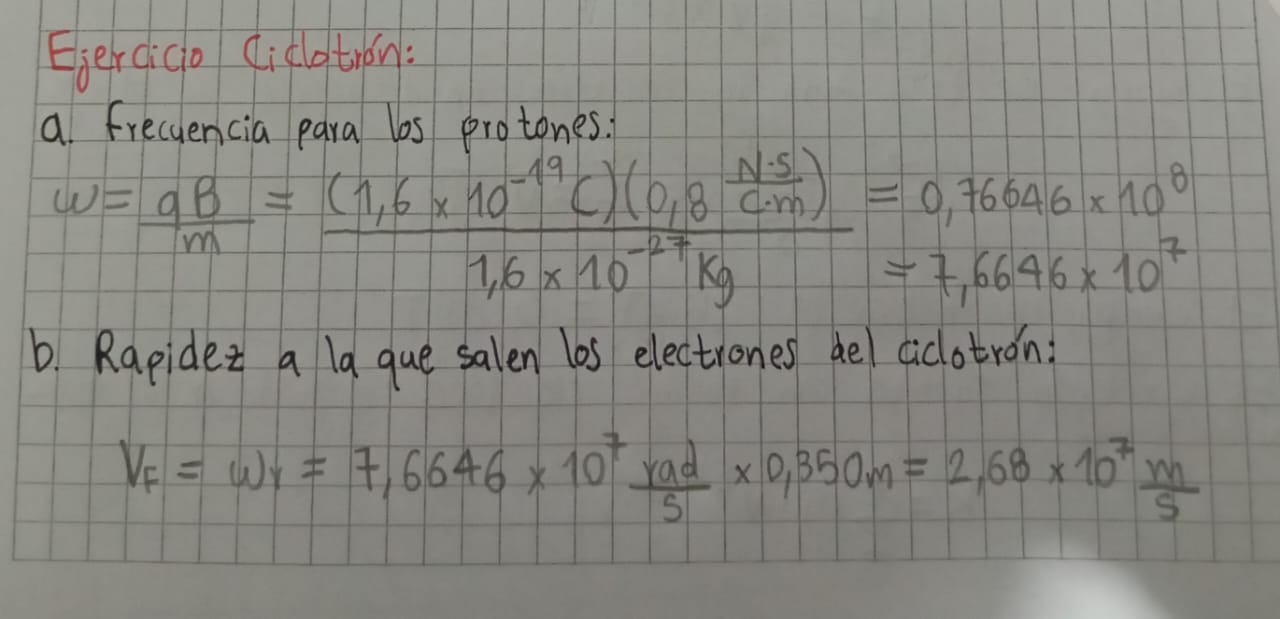 Ejercicio Ciclotrón:
a. frecuencia para los protones:
w = qB/m = (1,6 × 10^-19 C)(0,8 N·s/C·m) / 1,6 × 10^-27 Kg = 0,76646 × 10^8
= 7,6646 × 10^7
b. Rapidez a la que salen los electrones del ciclotrón:
VF = wr = 7,6646 × 10^7 rad/s × 0,350m = 2,68 × 10^7 m/s